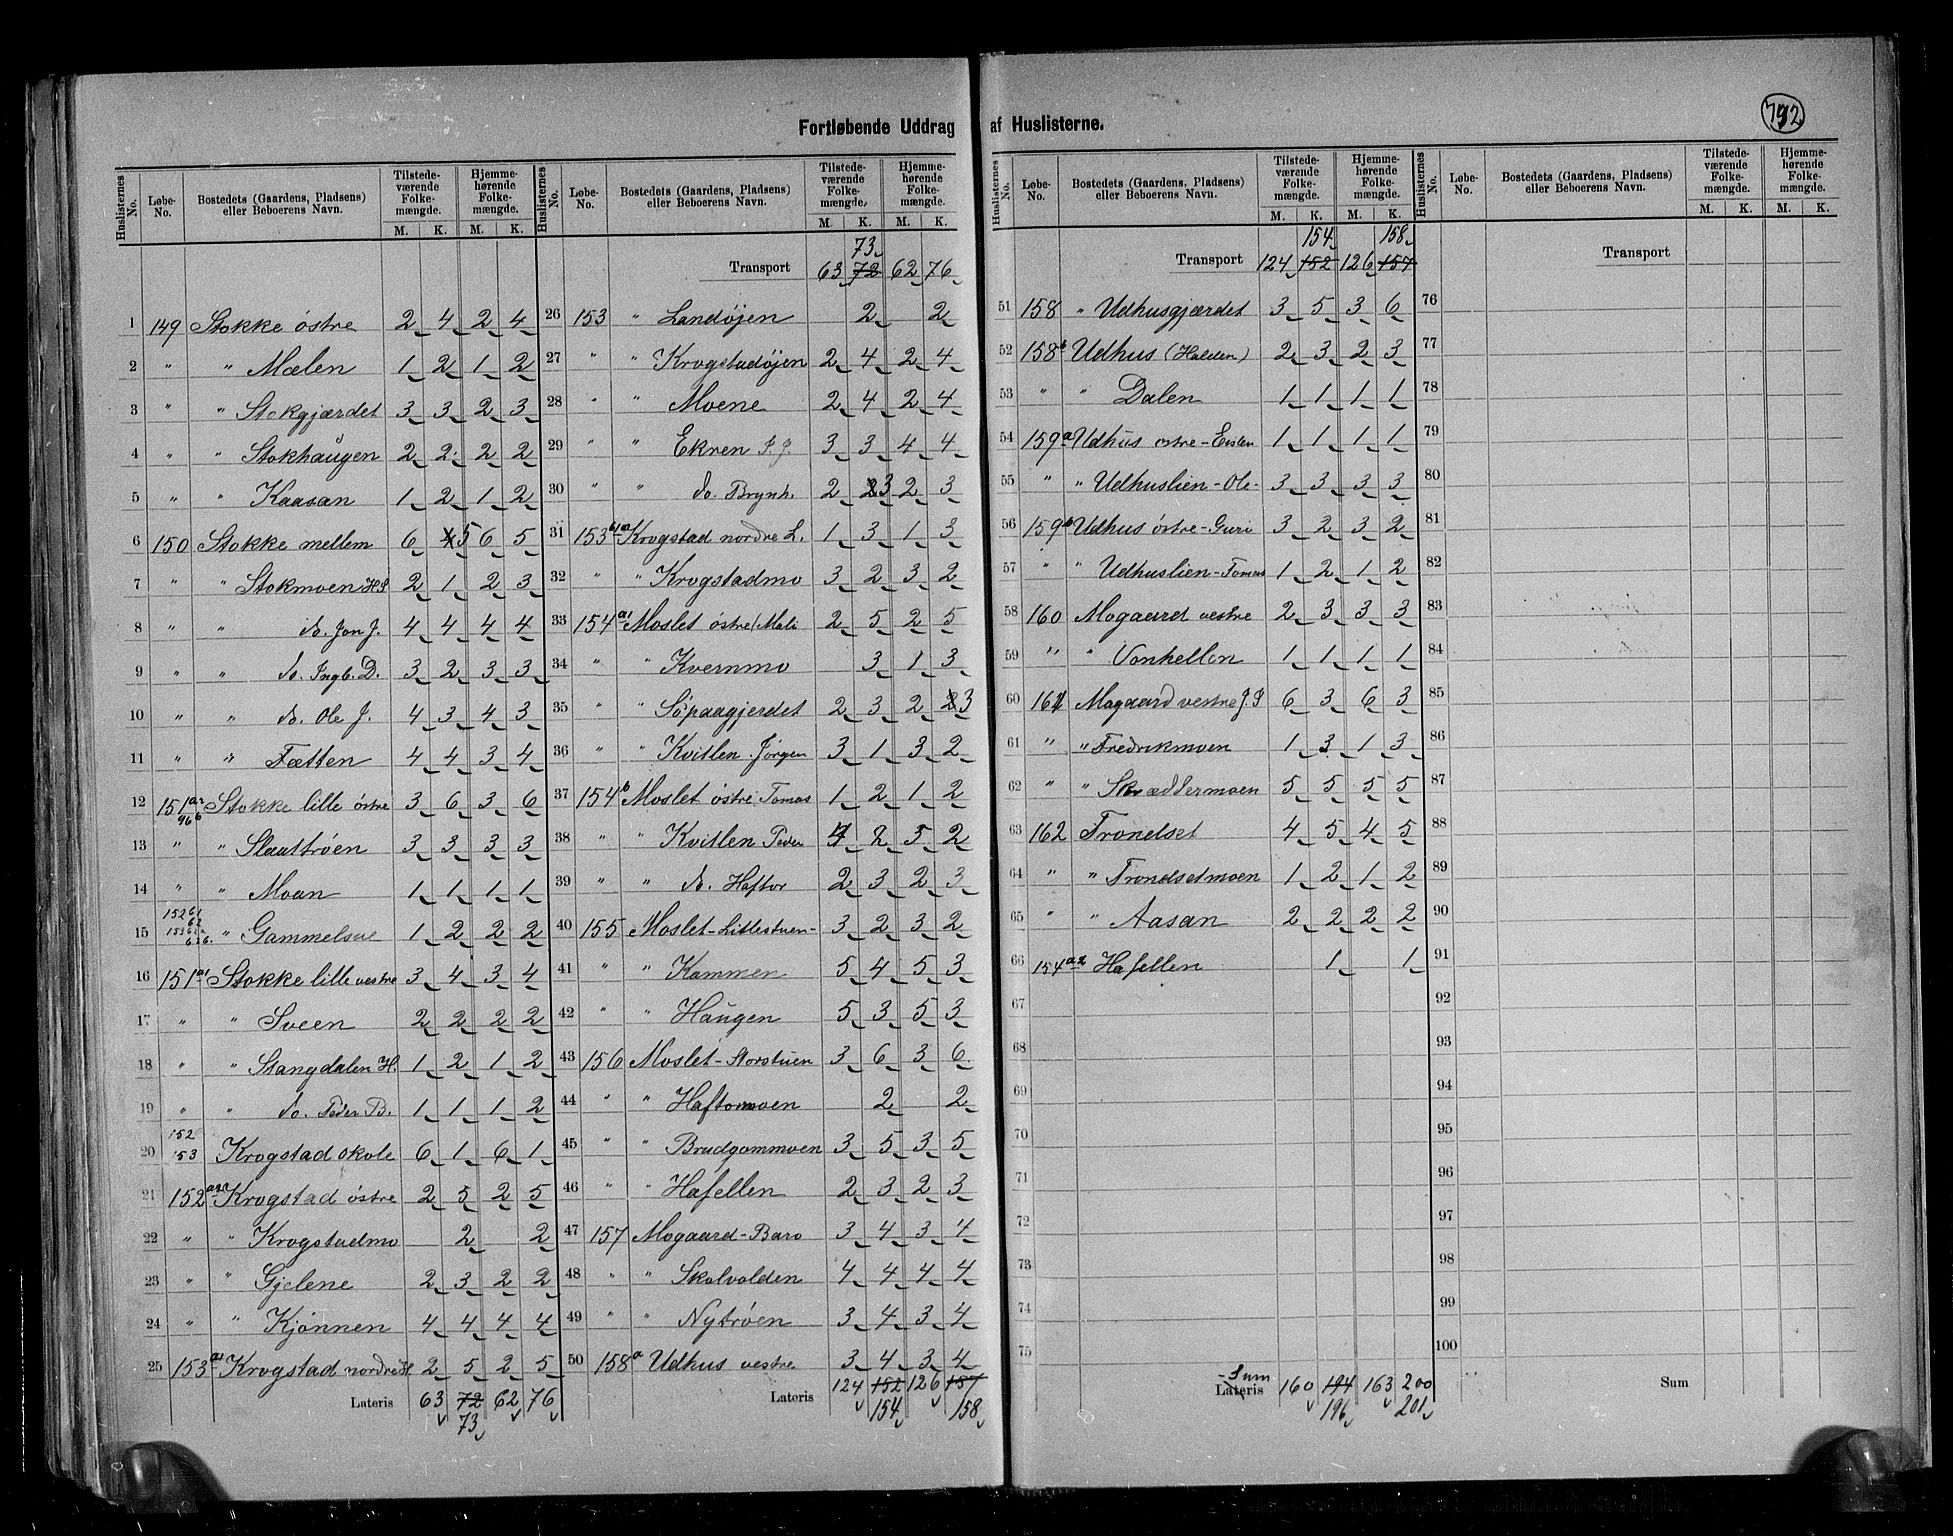 Fortløbende Uddrag af Huslisterne.
792
Huslisternes No. | Løbe-No. | Bostedets (Gaardens, Pladsens) eller Beboerens Navn. | Tilstedeværende Folkemængde. M. K. | Hjemmehørende Folkemængde. M. K.
1 149 Stokke östre 2 4 2 4
2 " " Mælen 1 2 1 2
3 " " Stokgjærdet 3 3 2 3
4 " " Stokhaugen 2 2 2 2
5 " " Kaasan 1 2 1 2
6 150 Stokke mellem 6 5 6 5
7 " " Stokmoen H.S. 2 1 2 3
8 " " do. Jon J. 4 4 4 4
9 " " do. Ingb. D. 3 2 3 3
10 " " do. Ole J. 4 3 4 3
11 " " Fætten 4 4 3 4
12 151 a2 96 b Stokke lille östre 3 6 3 6
13 " " Slaattrøen 3 3 3 3
14 " " Moan 1 1 1 1
15 " Gammelsve 1 2 2 2
16 151 a1 Stokke lille vestre 3 4 3 4
17 " " Sveen 2 2 2 2
18 " " Stangdalen H. 1 2 1 2
19 " " do. Peder B. 1 1 1 2
20 152 153 Krogstad skole 6 1 6 1
21 152 a2 Krogstad östre 2 5 2 5
22 " " Krogstadmo 2 2
23 " " Gjelene 2 3 2 2
24 " " Kjönnen 4 4 4 4
25 153 a1 Krogstad nordre H. 2 5 2 5
Lateris 63 72 62 76
73
Huslisternes No. | Løbe-No. | Bostedets (Gaardens, Pladsens) eller Beboerens Navn. | Tilstedeværende Folkemængde. M. K. | Hjemmehørende Folkemængde. M. K.
73
Transport 63 72 62 76
26 153 " Landöjen 2 2
27 " " Krogstadöjen 2 4 2 4
28 " " Moene 2 4 2 4
29 " " Ekren J. J. 3 3 4 4
30 " " do. Brynh. 2 3 2 3
31 153 Krogstad nordre L. 1 3 1 3
32 " " Krogstadmo 3 2 3 2
33 154 a1 Moslet östre/Mali 2 5 2 5
34 " " Kvernmo 3 1 3
35 " " Söpaagjerdet 2 3 2 3
36 " " Kvitlen Jörgen 3 1 3 2
37 154 b Moslet östre Tomas 1 2 1 2
38 " " Kvitlen Peder 4 2 5 2
39 " " do. Haftor 2 3 2 3
40 155 Moslet-Littlestuen- 3 2 3 2
41 " " Kammen 5 4 5 3
42 " " Haugen 5 3 5 3
43 156 Moslet-Storstuen 3 6 3 6
44 " " Haftormoen 2 2
45 " " Brudgommoen 3 5 3 5
46 " " Hafellen 2 3 2 3
47 157 Mogaard-Baro 3 4 3 4
48 " " Skolvolden 4 4 4 4
49 " " Nytröen 3 4 3 4
50 158 a Udhus vestre 3 4 3 4
Lateris 124 152 126 157
154 158
Huslisternes No. | Løbe-No. | Bostedets (Gaardens, Pladsens) eller Beboerens Navn. | Tilstedeværende Folkemængde. M. K. | Hjemmehørende Folkemængde. M. K.
154 158
Transport 124 152 126 157
51 158 " Udhusgjærdet 3 5 3 6
52 158 b Udhus (Halden) 2 3 2 3
53 " " Dalen 1 1 1 1
54 159 a Udhus östre-Eisten 1 1 1 1
55 " " Udhuslien-Ole- 3 3 3 3
56 159 b Udhus östre-Guri 3 2 3 2
57 " " Udhuslien-Tomas 1 2 1 2
58 160 Mogaard vestre 2 3 3 3
59 " " Vonhellen 1 1 1 1
60 161 Mogaard vestre J. S 6 3 6 3
61 " " Fredrikmoen 1 3 1 3
62 " " Skræddermoen 5 5 5 5
63 162 Trondset 4 5 4 5
64 " " Trondsetmoen 1 2 1 2
65 " " Aasan 2 2 2 2
66 154 a2 Hafellen 1 1
67
68
69
70
71
72
73
74
75
-Sum
Lateris 160 194 163 200
196 201
Huslisternes No. | Løbe-No. | Bostedets (Gaardens, Pladsens) eller Beboerens Navn. | Tilstedeværende Folkemængde. M. K. | Hjemmehørende Folkemængde. M. K.
Transport
76
77
78
79
80
81
82
83
84
85
86
87
88
89
90
91
92
93
94
95
96
97
98
99
100
Sum